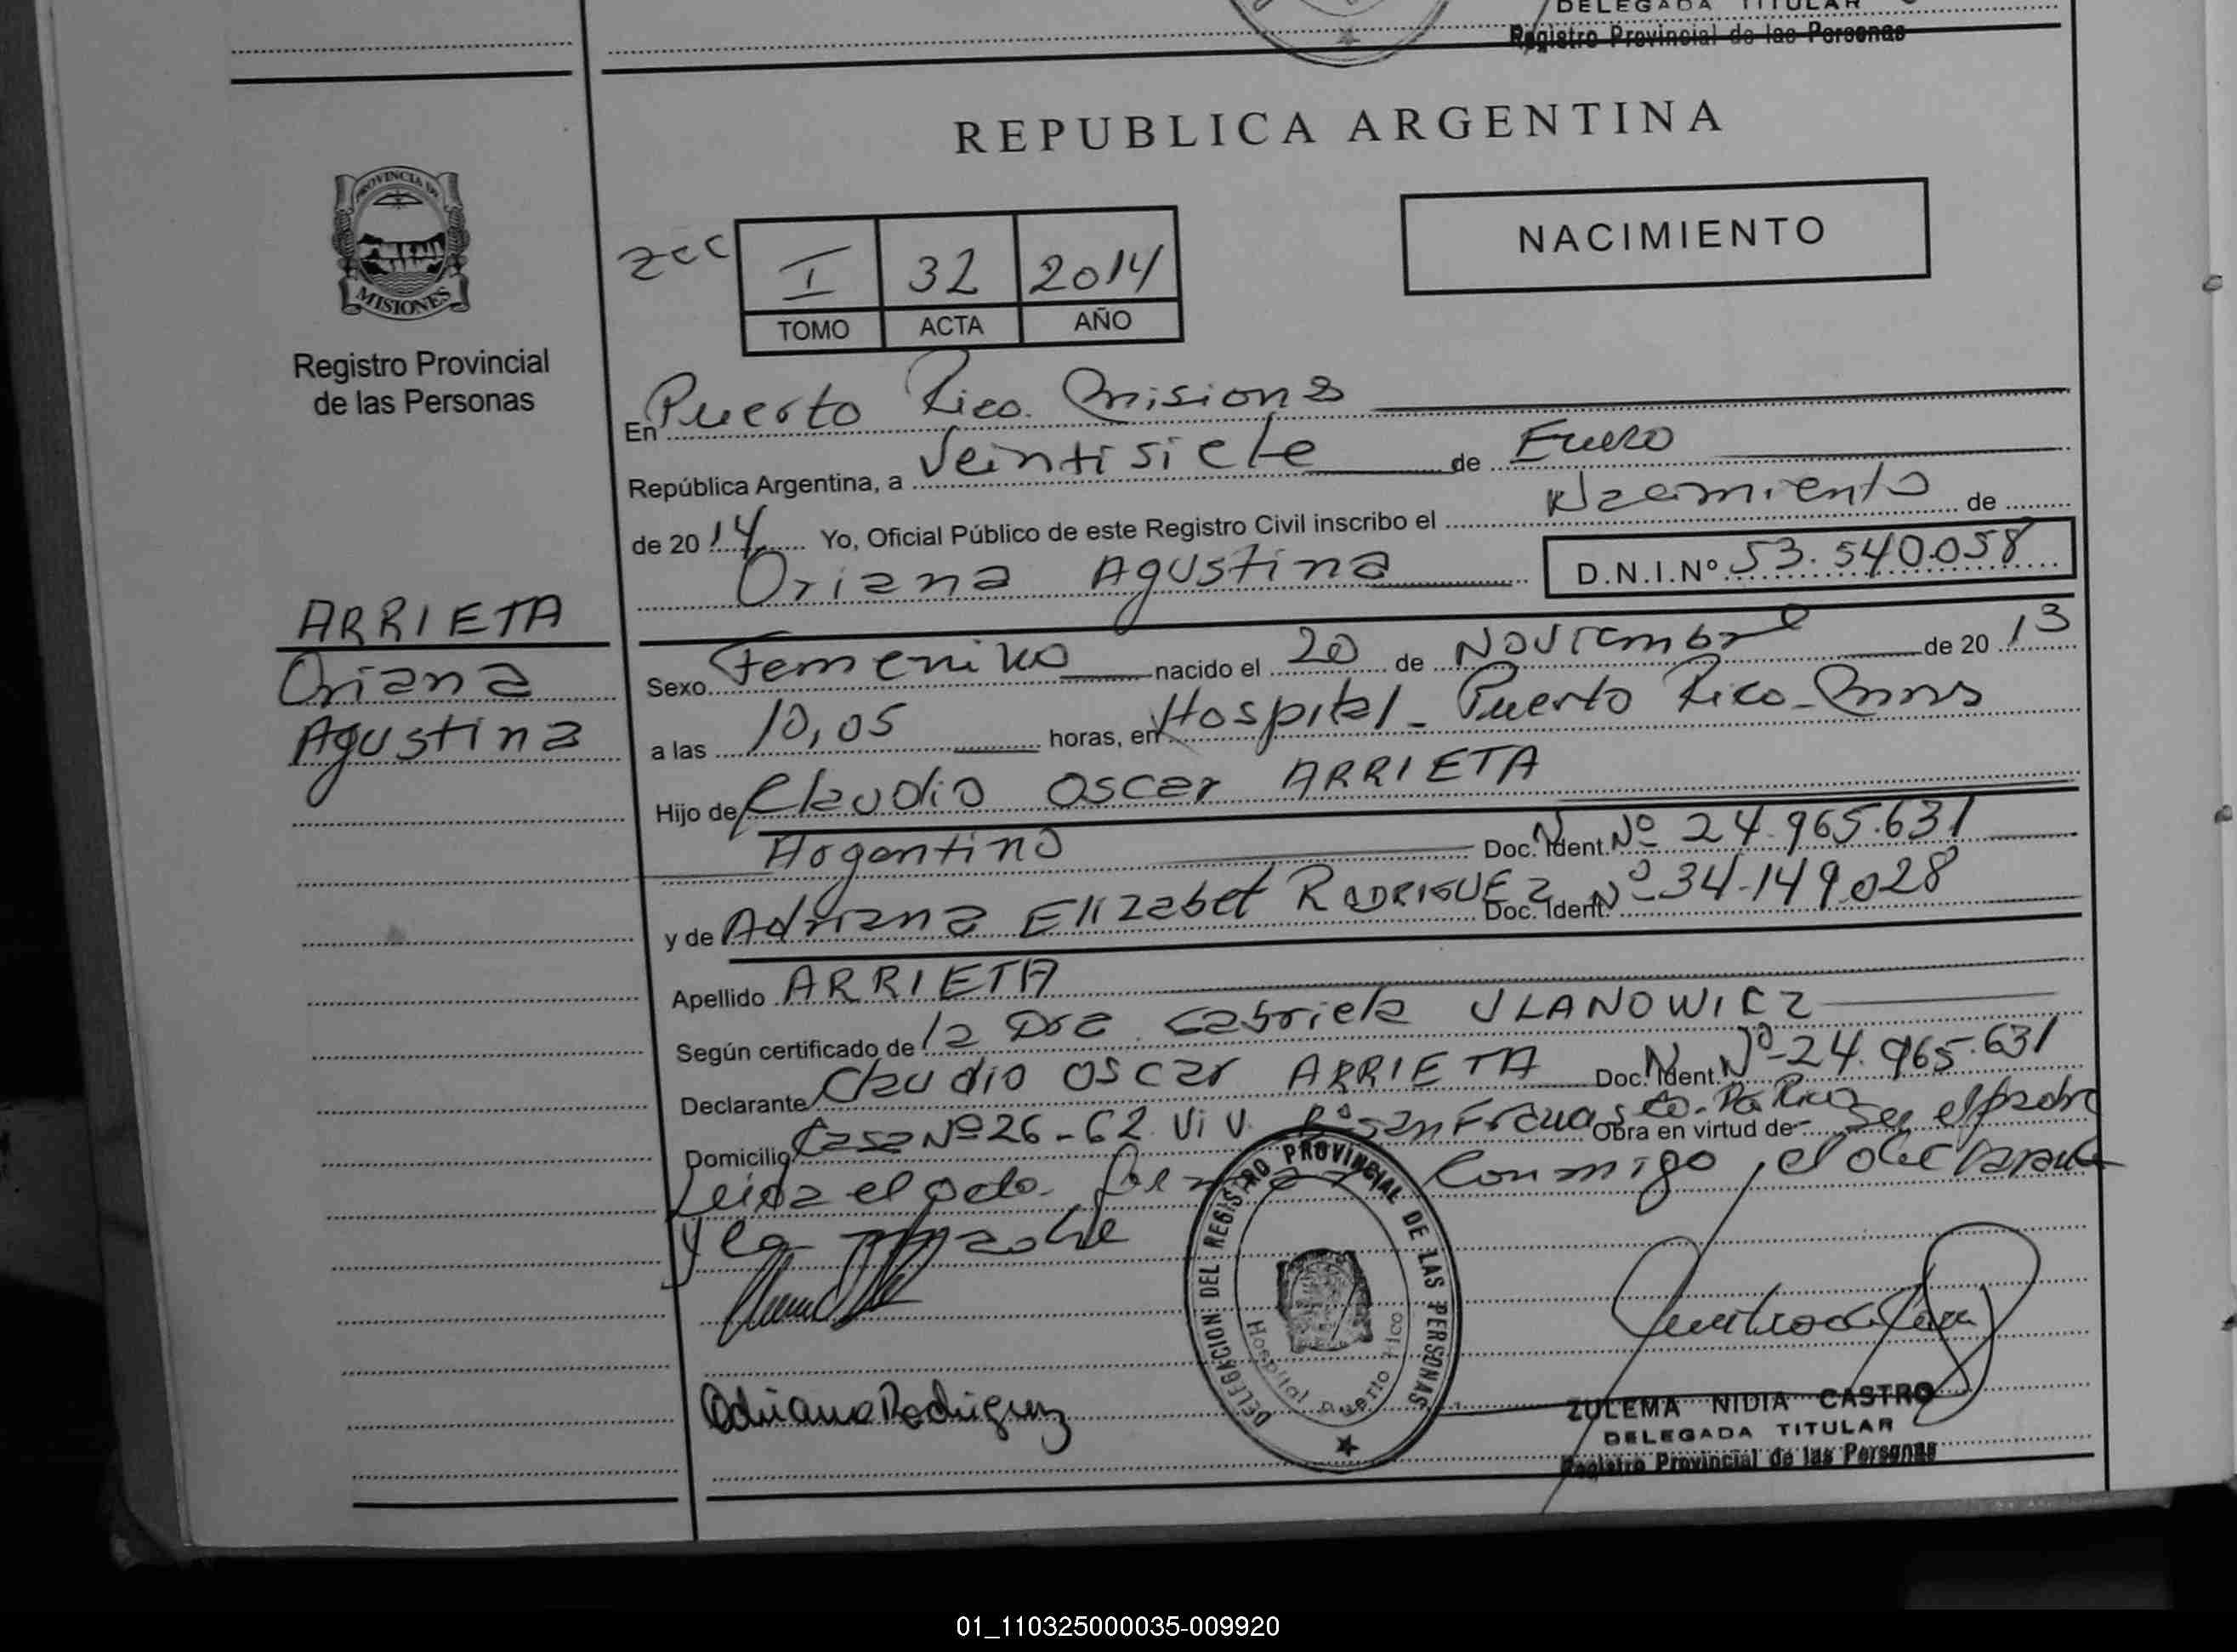 DELEGADA TITULAR
Registro Provincial de las Personas
REPUBLICA ARGENTINA
PROVINCIA DE
MISIONES
Registro Provincial
de las Personas
NACIMIENTO
I 32 2014
TOMO ACTA AÑO
En Puerto Rico. Misiones
República Argentina, a Veintisiete de Enero
de 2014 Yo, Oficial Público de este Registro Civil inscribo el Nacimiento de
Oriana Agustina D.N.I.Nº 53.540.058
ARRIETA
Oriana
Agustina
Sexo Femenino nacido el 20 de Noviembre de 2013
a las 10,05 horas, en Hospital - Puerto Rico - Mnes
Hijo de Claudio Oscar ARRIETA
Argentino Doc. Ident. Nº 24.965.631
y de Adriana Elizabet RODRIGUEZ Doc. Ident. Nº 34.149.028
Apellido ARRIETA
Según certificado de la Dra. Gabriela ULANOWICZ
Declarante Claudio Oscar ARRIETA Doc. Ident. Nº 24.965.631
Domicilio Casa Nº 26 - 62 Viv. Bº San Obra en virtud de Ser el padre
Leida el acta conmigo, el declarante
y la madre
Adriana Rodriguez
DELEGACION DEL REGISTRO PROVINCIAL DE LAS PERSONAS
Hospital Puerto Rico
ZULEMA NIDIA CASTRO
DELEGADA TITULAR
Registro Provincial de las Personas
01_110325000035-009920